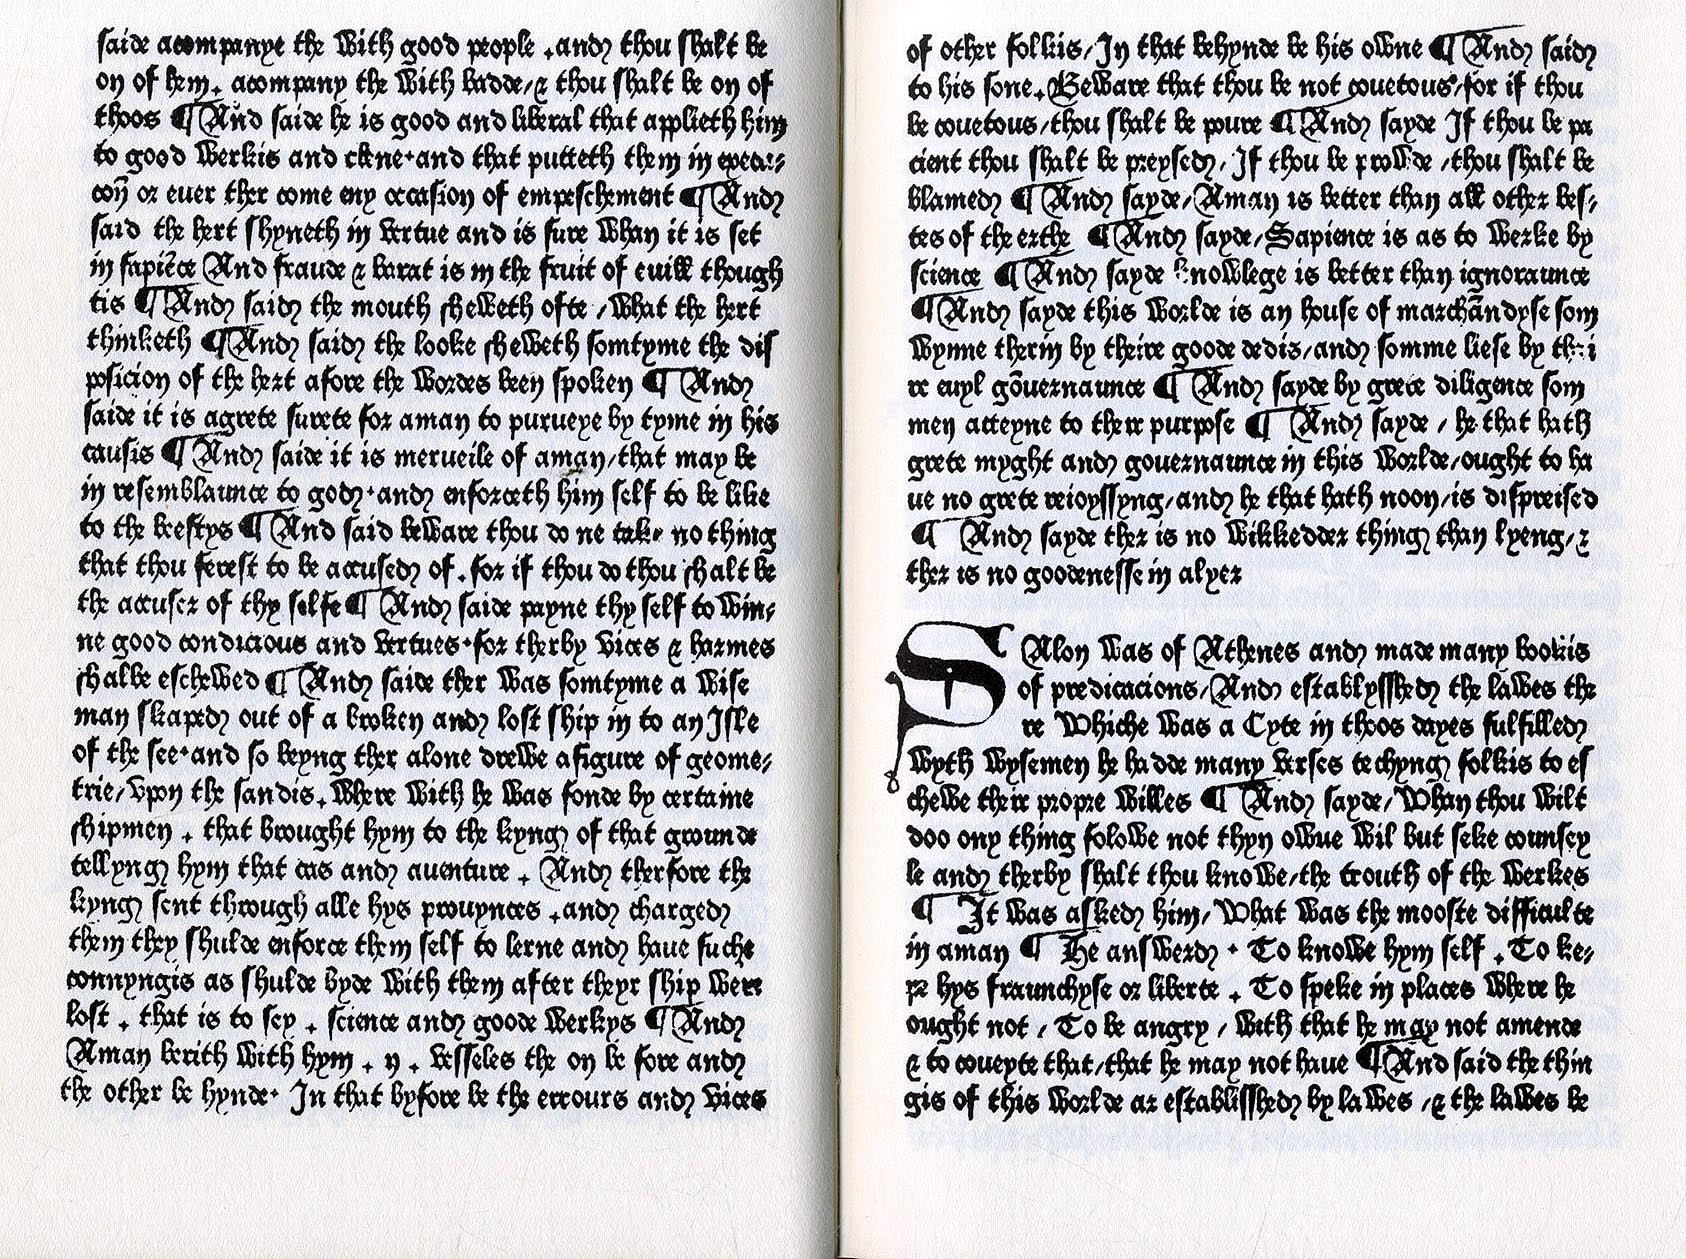 saide acompanye the with good people . and thou shalt be
on of hem . acompany the with badde / & thou shalt be on of
thoos ¶ And saide he is good and liberal that applieth him
to good werkis and clene · and that putteth them in execu⸗
coñ or euer ther come eny occasion of empeschement ¶ And
said the hert shyneth in vertue and is sure whan it is set
in sapiẽce And fraude & barat is in the fruit of euill though
tis ¶ And said the mouth sheweth ofte / what the hert
thinketh ¶ And said the looke sheweth somtyme the dis
posicion of the hert afore the wordes been spoken ¶ And
saide it is agrete surete for aman to purueye by tyme in his
causis ¶ And saide it is merueile of aman / that may be
in resemblaunce to god · and enforceth him self to be like
to the beestys ¶ And said beware thou do ne take no thing
that thou ferest to be accused of . for if thou do thou shalt be
the accuser of thy selfe ¶ And saide payne thy self to win⸗
ne good condicious and vertues · for therby vices & harmes
shalbe eschewed ¶ And saide ther was somtyme a wise
man skaped out of a broken and lost ship in to an Isle
of the see · and so beyng ther alone drewe afigure of geome⸗
trie / vpon the sandis . where with he was fonde by certaine
shipmen . that brought hym to the kyng of that grounde
tellyng hym that cas and auenture . And therfore the
kyng sent through alle hys prouynces . and charged
them they shulde enforce them self to lerne and haue suche
connyngis as shulde byde with them after theyr ship were
lost . that is to sey . science and goode werkys ¶ And
Aman berith with hym . ij . vesseles the on be fore and
the other be hynde · In that byfore be the errours and vices
of other folkis / In that behynde be his owne ¶ And said
to his sone . Beware that thou be not couetous / for if thou
be couetous / thou shalt be poure ¶ And sayde If thou be pa
cient thou shalt be preysed / If thou be prowde / thou shalt be
blamed ¶ And sayde / Aman is better than all other bes⸗
tes of the erthe ¶ And sayde / Sapience is as to werke by
science ¶ And sayde knowlege is better than ignoraunce
¶ And sayde this worlde is an house of marchãndyse som
wynne therin by theire goode dedis / and somme liese by thei
re euyl gõuernaunce ¶ And sayde by grete diligence som
men atteyne to there purpose ¶ And sayde / he that hath
grete myght and gouernaunce in this worlde / ought to ha
ue no grete reioyssyng / and he that hath noon / is dispreised
¶ And sayde ther is no wikkedder thing than lyeng / &
ther is no goodenesse in alyer
SAlon was of Athenes and made many bookis
of predicacions / And establysshed the lawes the
re whiche was a Cyte in thoos dayes fulfilled
wyth wysemen he hadde many verses techyng folkis to es
chewe their propre willes ¶ And sayde / whan thou wilt
doo ony thing folowe not thyn owue wil but seke counsey
le and therby shalt thou knowe / the trouth of the werkes
¶ It was asked him / what was the mooste difficulte
in aman ¶ He answerd · To knowe hym self . To ke⸗
pe hys fraunchyse or liberte . To speke in places where he
ought not / To be angry / with that he may not amende
& to coueyte that / that he may not haue ¶ And said the thin
gis of this worlde ar establisshed by lawes / & the lawes be